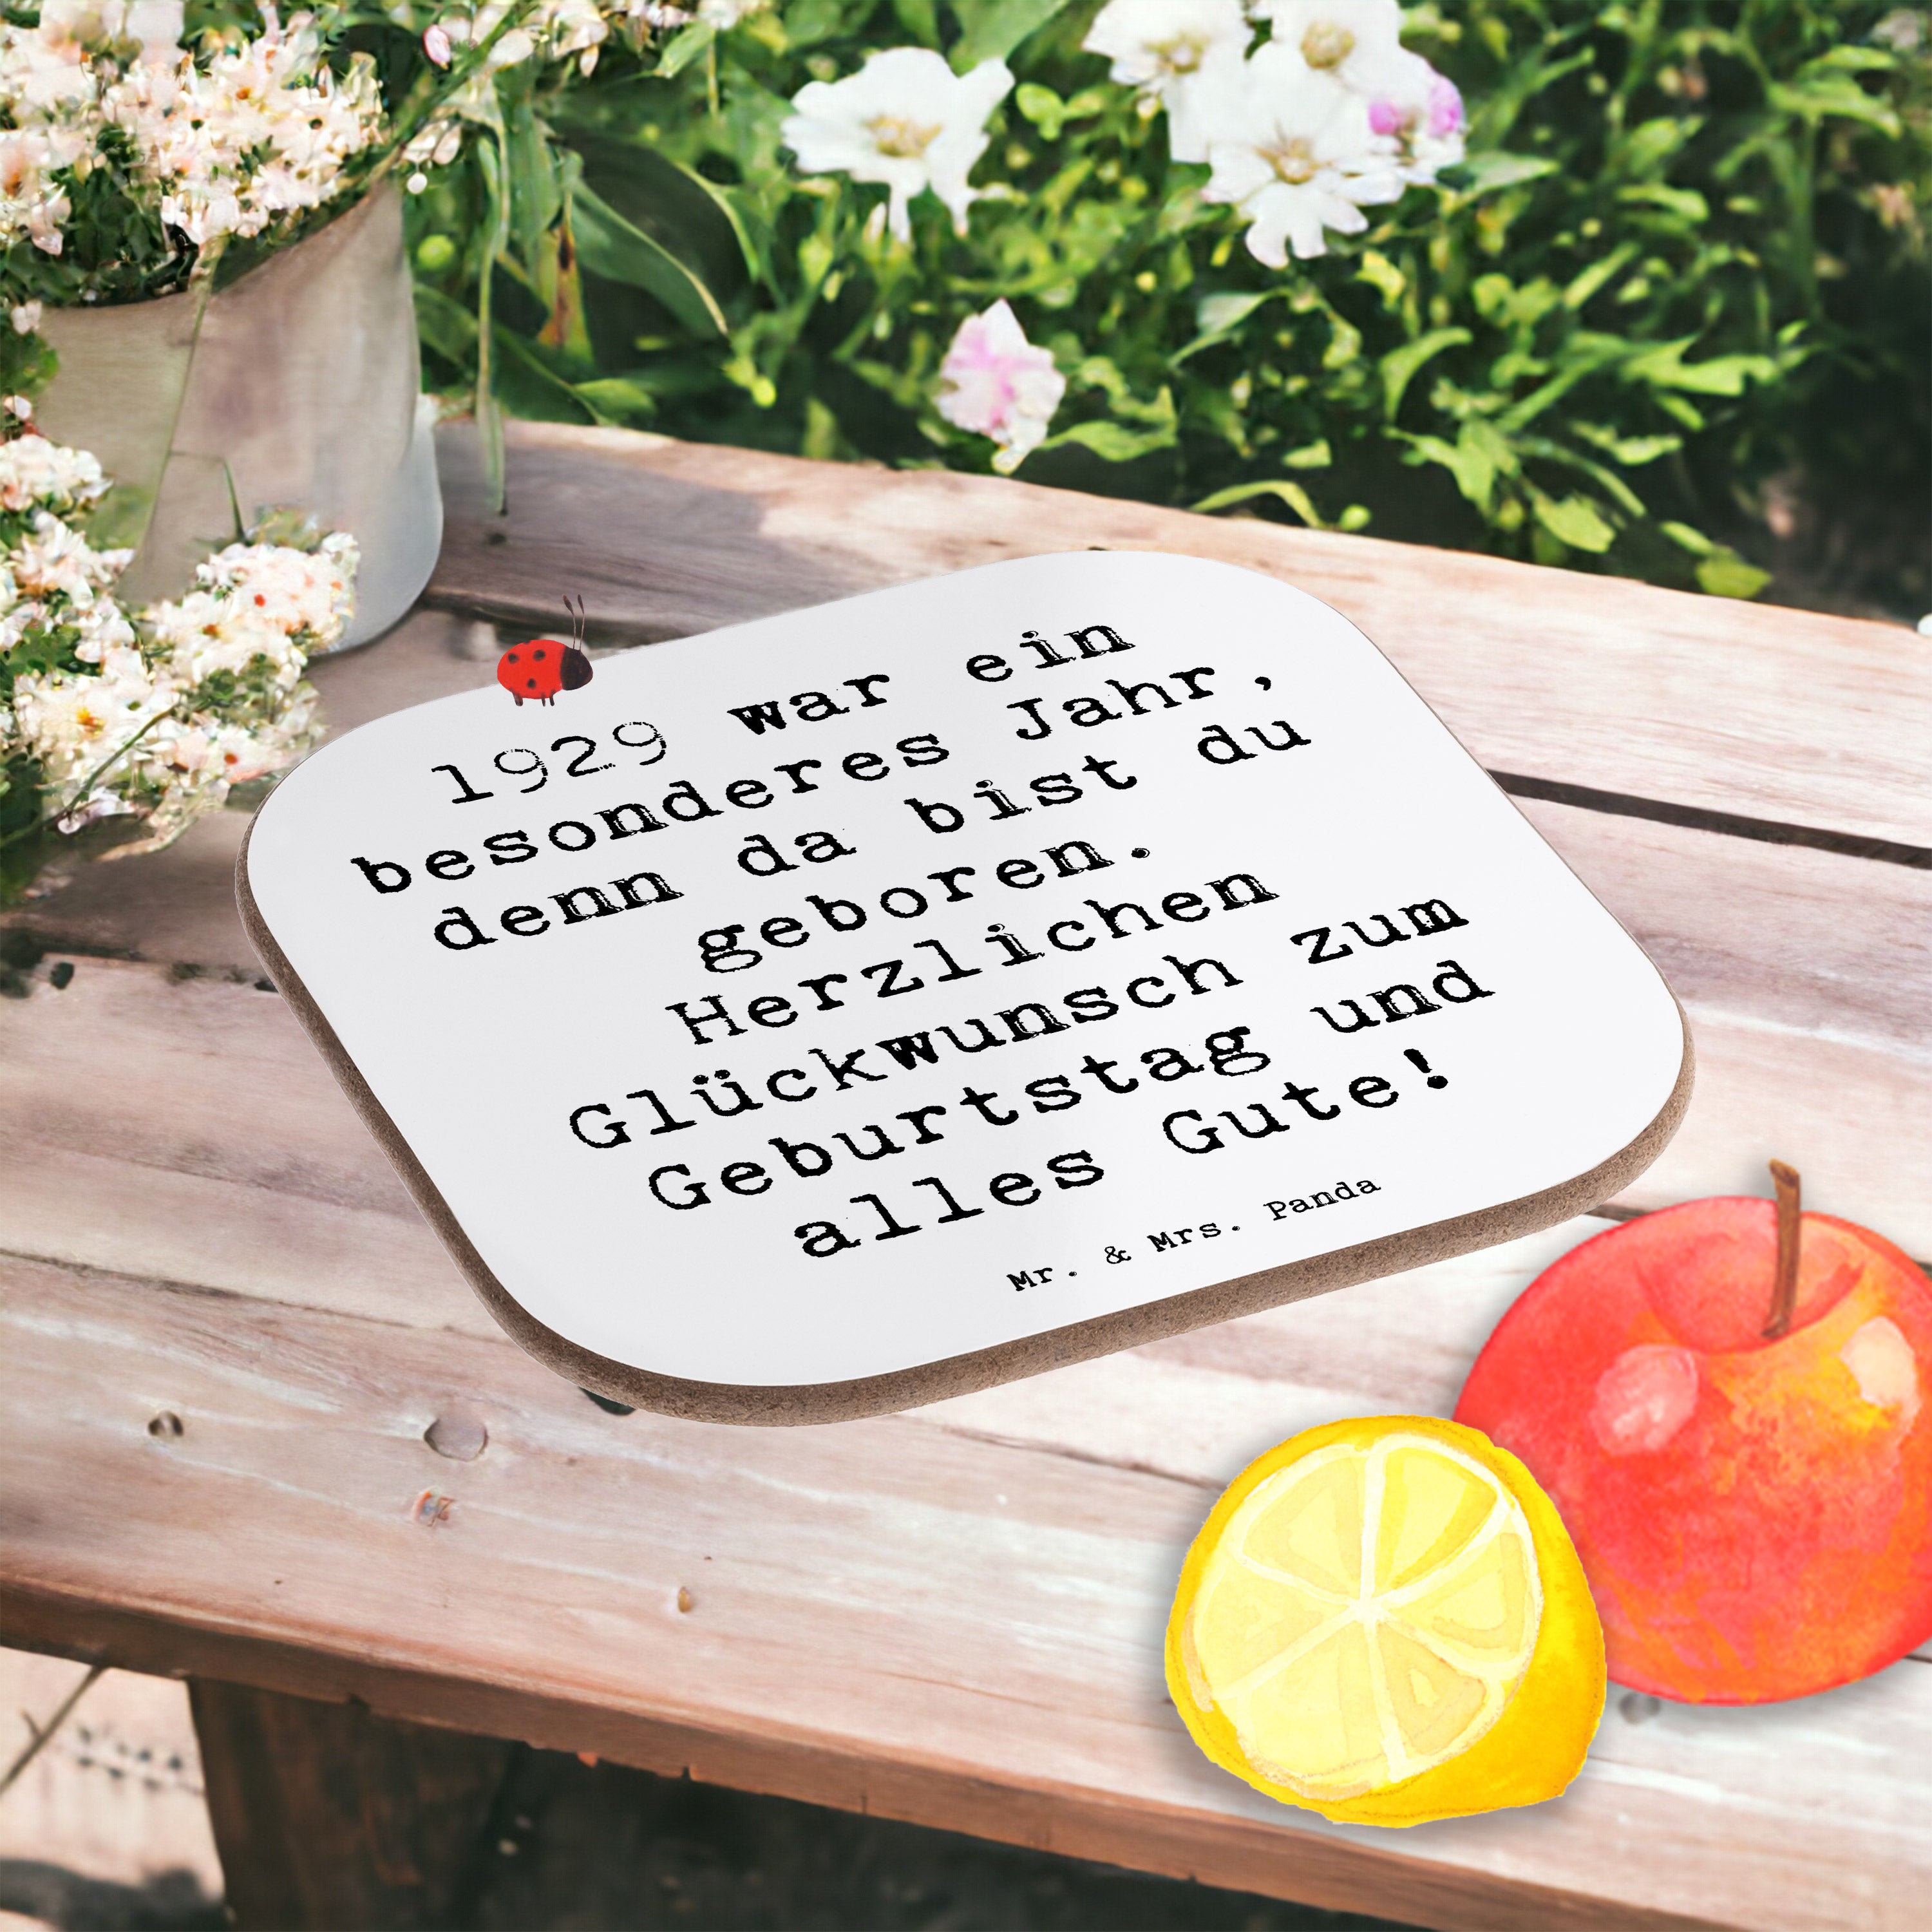 1929 war ein
besonderes Jahr,
denn da bist du
geboren.
Herzlichen
Glückwunsch zum
Geburtstag und
alles Gute!
Mr. & Mrs. Panda